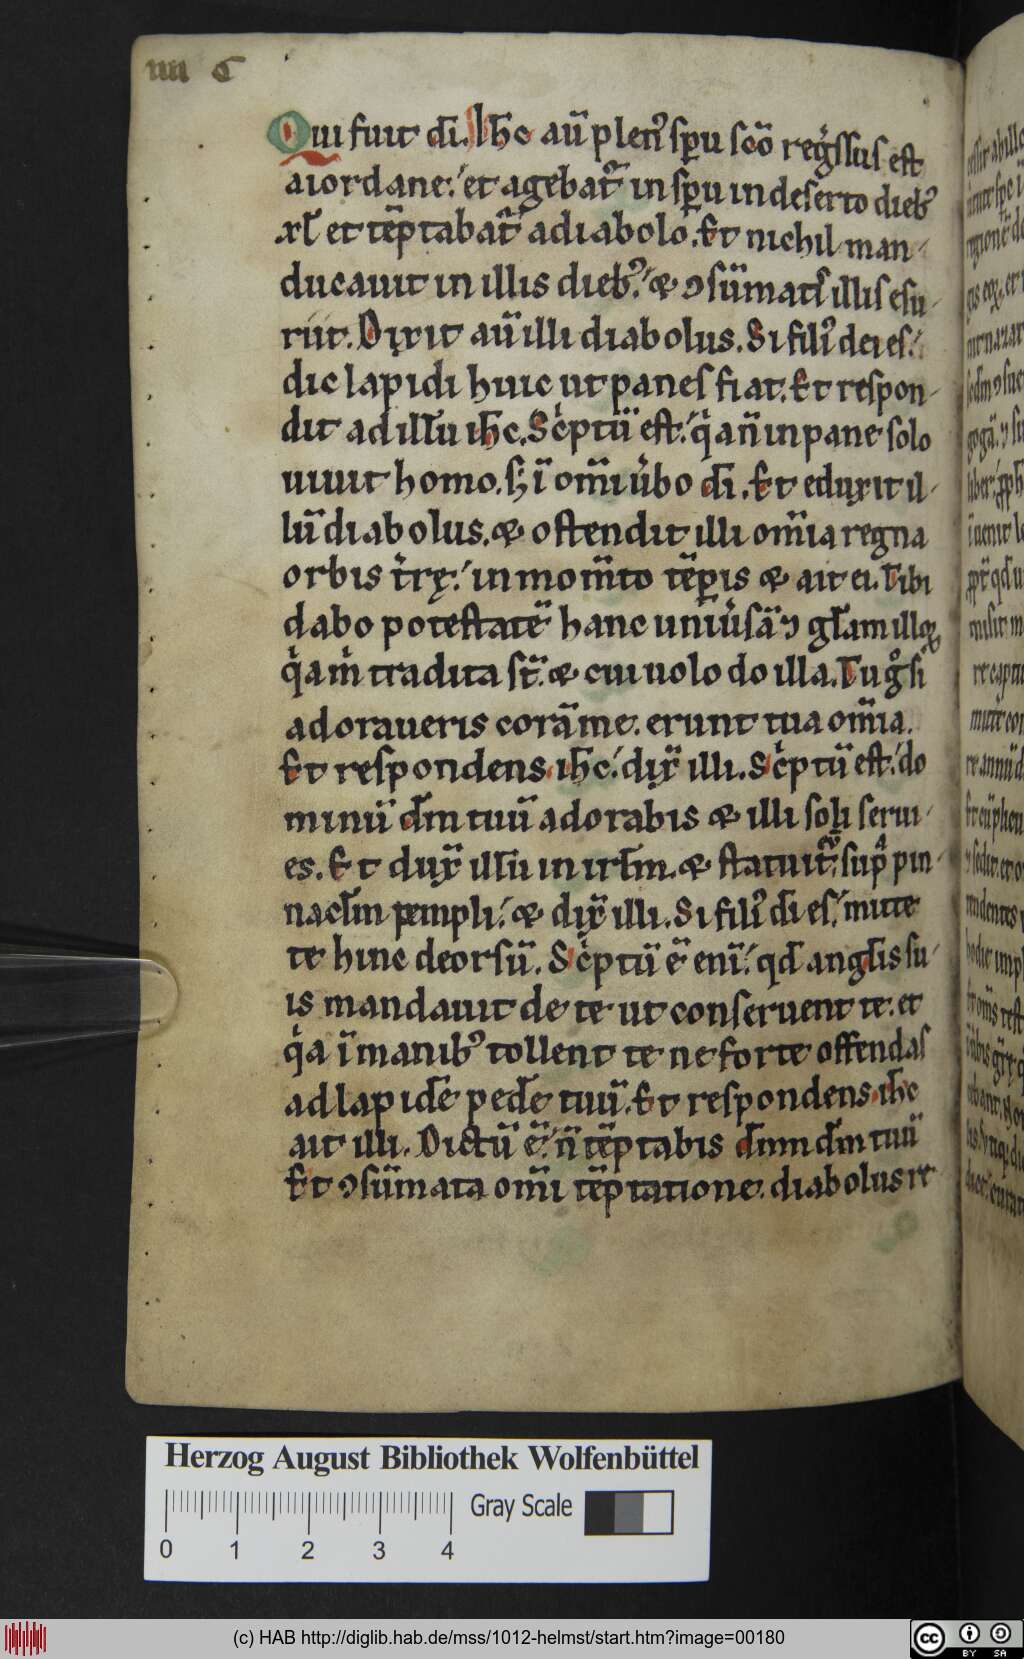 iiii C
Qui fuit dī. Ihc aū plen᾽ sp̄u scō reg̍ssus est
a iordane. et agebat᷑ in sp̄u in deserto dieb᾽
xl et tēptabat᷑ a diabolo. Et nichil man-
ducauit in illis dieb᾽. & ꝯsūmatis illis esu-
riit. Dixit aū illi diabolus. Si fili᾽ dei es.
dic lapidi huic ut panes fiat. Et respon-
dit ad illū ihc. Sc̍ptū est. q̍a ñ in pane solo
uiuit homo. sꝫ ī om̄i u̍bo dī. Et eduxit il-
lū diabolus. & ostendit illi om̄ia regna
orbis t̍rę. in mom̄to tēp̄is & ait ei. Tibi
dabo potestatē hanc uniu̍sā ⁊ gl̄am illoꝝ
q̍a m̍ tradita st̄. & cui uolo do illa. Tu g̊ si
adoraueris corā me. erunt tua om̄ia.
Et respondens ihc. dix̄ illi. Sc̍ptū est. do
minū dm̄ tuū adorabis & illi soli serui-
es. Et dux̄ illū in irl̄m. & statuit supᷓ pin-
nacl̄m templi. & dix̄ illi. Si fili᾽ dī es. mitte
te hinc deorsū. Sc̍ptū ē enī. qd̄ angl̄is su-
is mandauit de te ut conseruent te. et
q̍a ī manib᾽ tollent te ne forte offendas
ad lapidē pedē tuū. Et respondens ihc
ait illi. Dictū ē. ñ tēptabis dn̄m dm̄ tuū
Et ꝯsūmata om̄i tēptatione. diabolus re
Herzog August Bibliothek Wolfenbüttel
Gray Scale
0 1 2 3 4
(c) HAB http://diglib.hab.de/mss/1012-helmst/start.htm?image=00180
cc BY SA